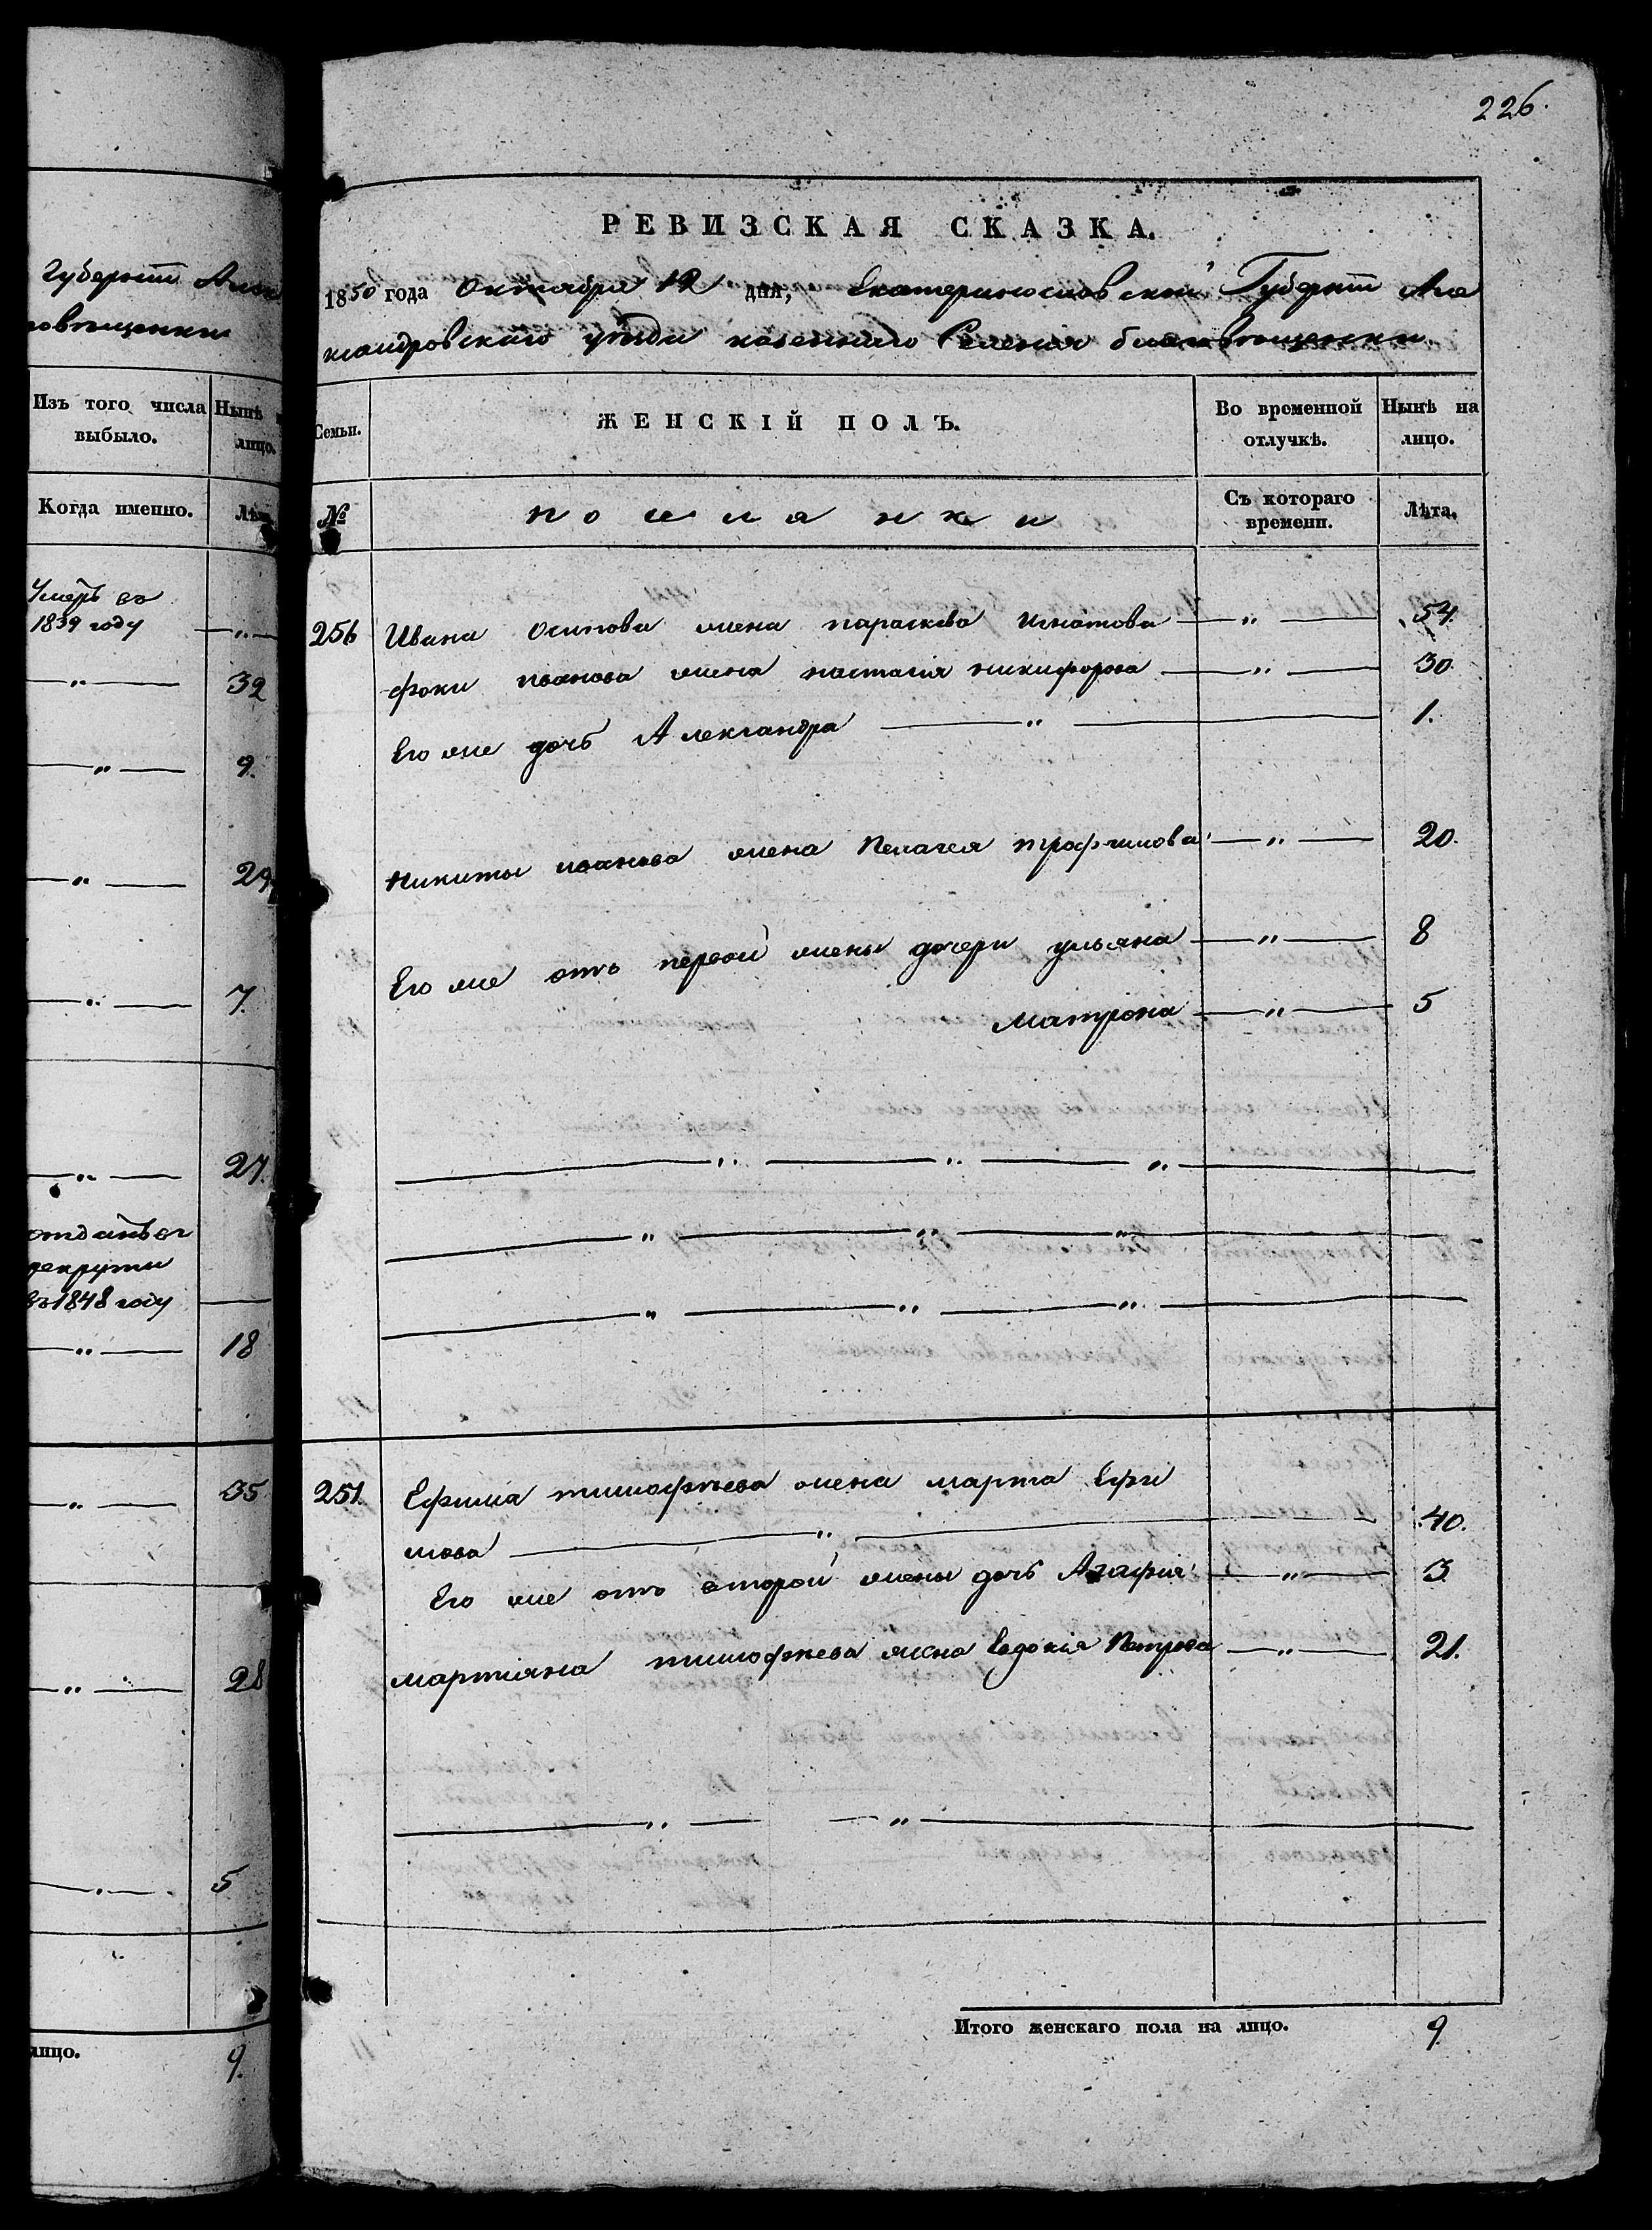 226.
Губернiи Алек
Изъ того числа
выбыло.
Нынѣ
лицо.
Когда именно.
Умеръ въ
1839 году
32
9.
29
7.
27.
отданъ в
рекруты
въ 1848 году
18
35
28
5
лицо.
9.
РЕВИЗСКАЯ СКАЗКА.
1850 года Октября 12 дня, Екатеринославской Губернiи Але
ксандровскаго уѣзда казеннаго Селенiя благовѣщенки
Семьи.
ЖЕНСКІЙ ПОЛЪ.
Во временной
отлучкѣ.
Нынѣ на
лицо.
№
поселянки
Съ котораго
времени.
Лѣта.
256 Ивана Осипова жена параскева игнатова — „ — 54.
фоки иванова жена настасiя никифорова — „ — 30.
Его же дочь Александра — „ — 1.
никиты иванова жена Пелагея трофимова — „ — 20.
Его же отъ первой жены дочери ульяна — „ — 8
матрона — „ — 5
257. Ефима тимофѣева жена марта Ефи
мова — „ — 40.
Его же отъ второй жены дочь Агафiя — „ — 3
мартiяна тимофѣева жена Евдокiя Петрова — „ — 21.
Итого женскаго пола на лицо. 9.